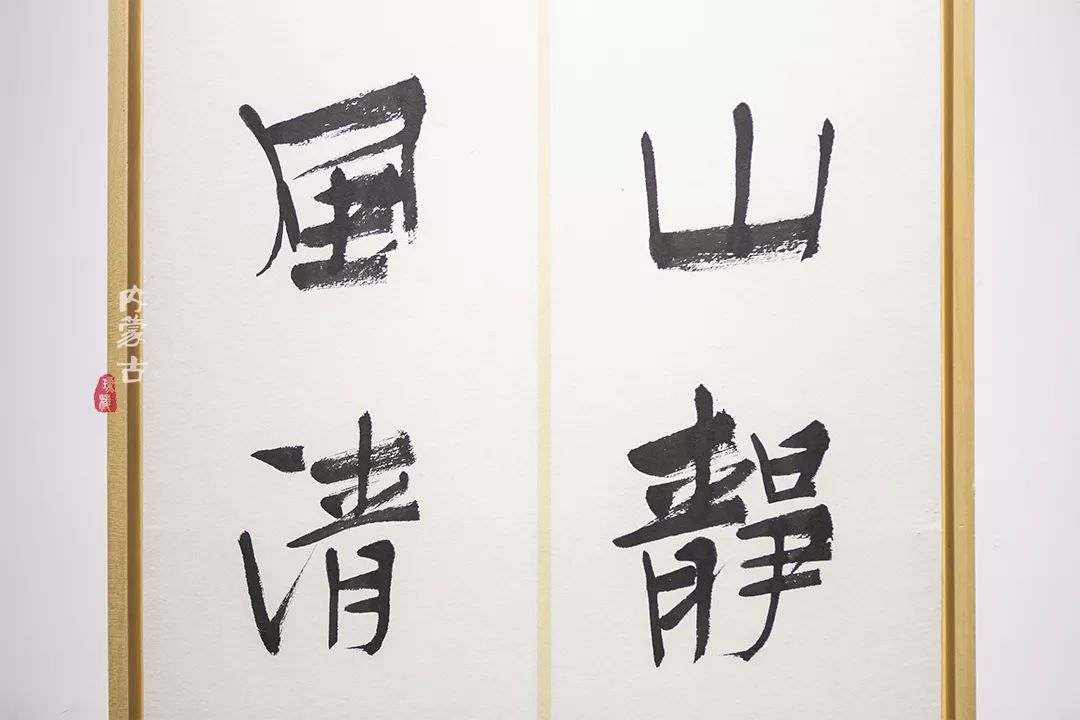 山静
风清
内蒙古